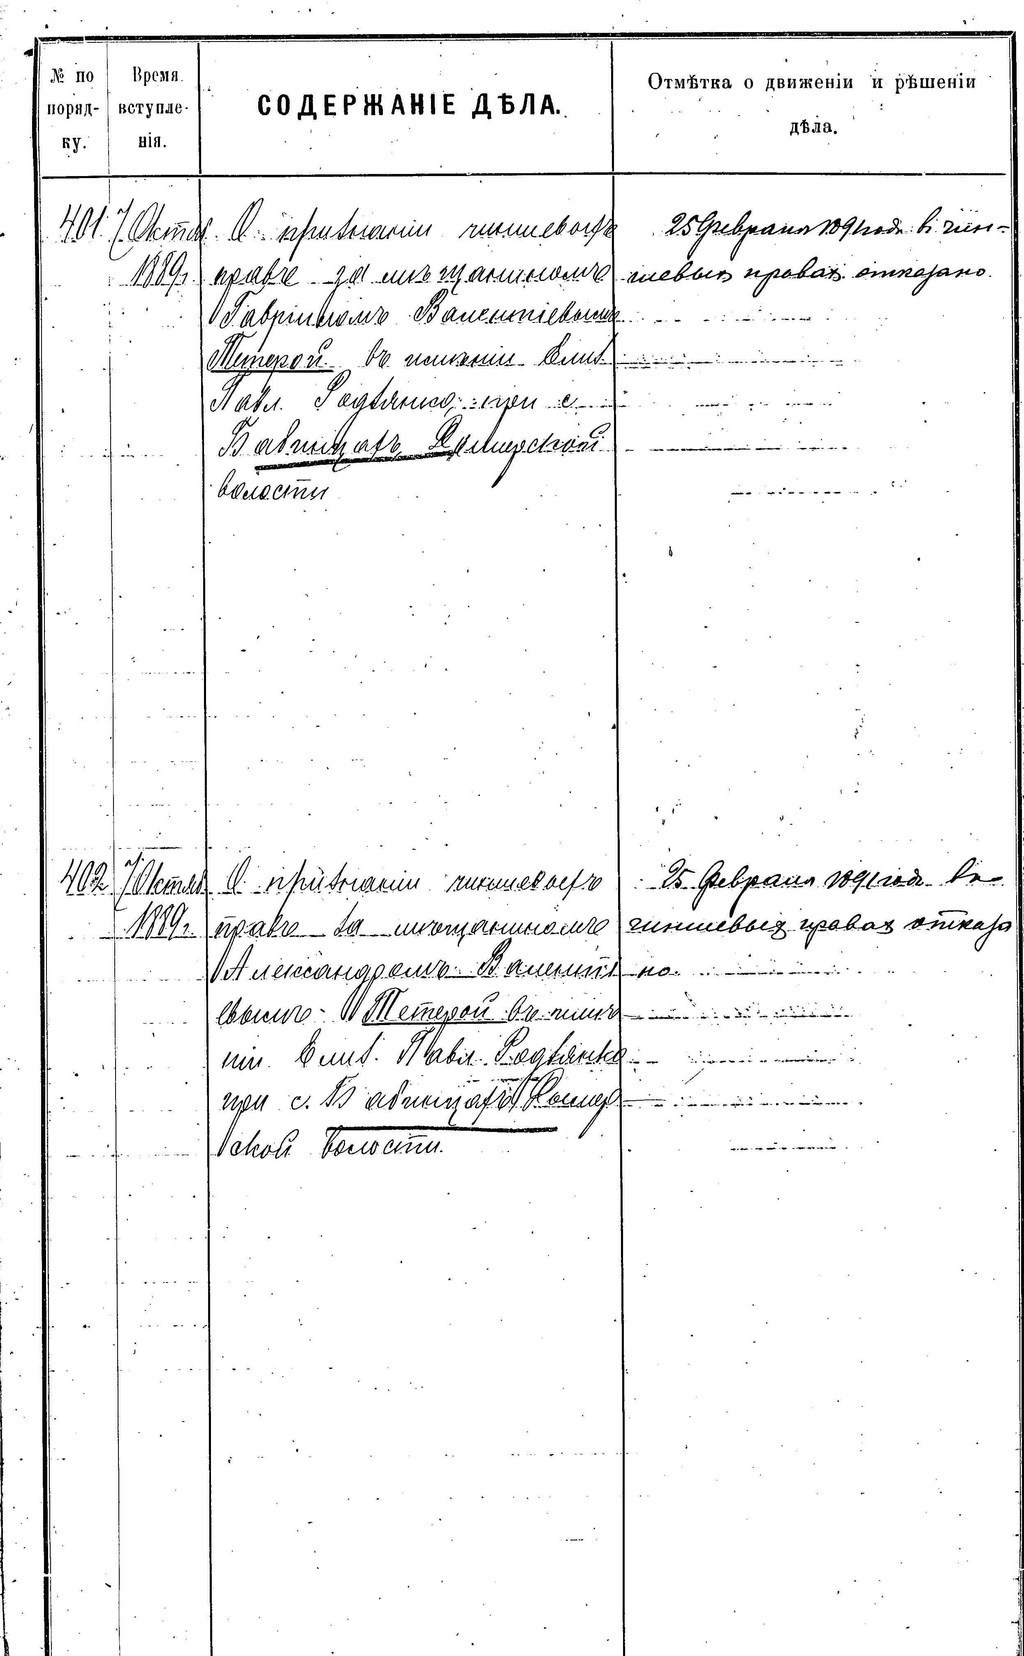 № по поряд-ку.
Время вступле-нія.
СОДЕРЖАНІЕ ДѢЛА.
Отмѣтка о движеніи и рѣшеніи
дѣла.
401
7 Октяб
1889г.
О признаніи чиншеваго
права за мѣщаниномъ
Гавріиломъ Валентіевымъ
Тетерой въ имѣніи Елиз.
Павл. Родзянко, при с.
Бабинцахъ Дымерской
волости
25 Февраля 1891 года въ чин-
шевыхъ правахъ отказано.
402
7 Октяб
1889г.
О признаніи чиншеваго
права за мѣщаниномъ
Александромъ Валенті
евымъ Тетерой въ имѣ
ніи Елиз. Павл. Родзянко
при с. Бабинцахъ Дымер
ской волости.
25 Февраля 1891 года въ
чиншевыхъ правахъ отказа
но.